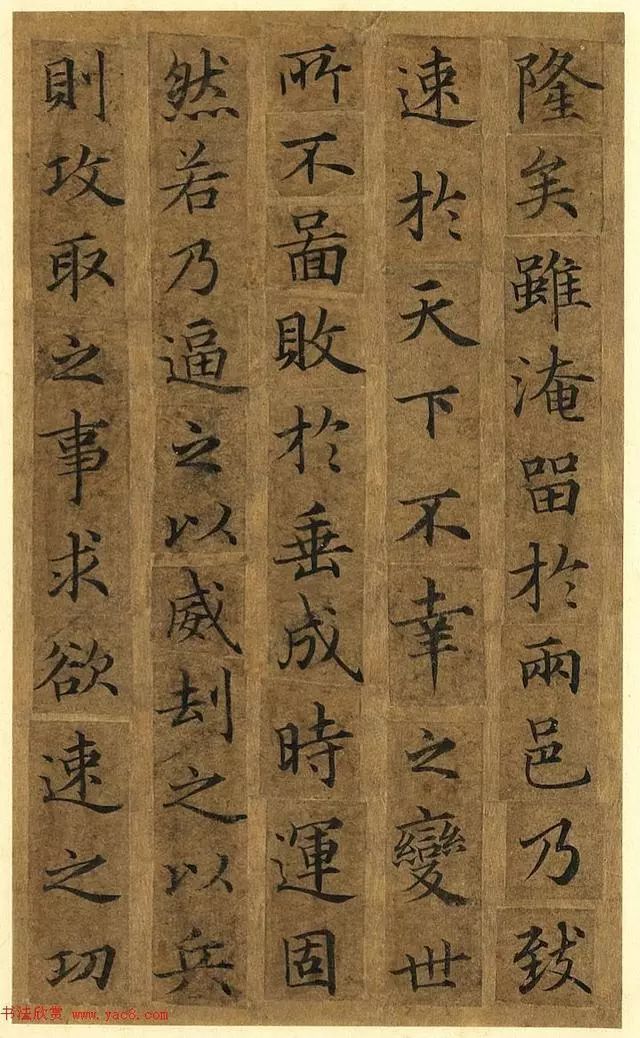 隆矣雖淹留於兩邑乃致
速於天下不幸之變世
所不啚敗於垂成時運固
然若乃逼之以威刧之以兵
則攻取之事求欲速之功
书法欣赏 www.yac8.com